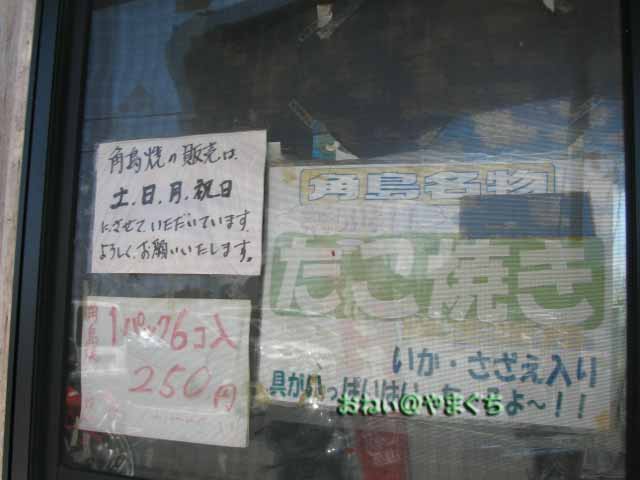 角島焼の販売は、
土、日、月、祝日
にさせていただいています。
ようしく、お願いいたします。
角島焼
1パック6コ入
250円
角島名物
たこ焼き
いか・さざえ入り
具がいっぱいはいってるよ～!!
おねい@やまぐち